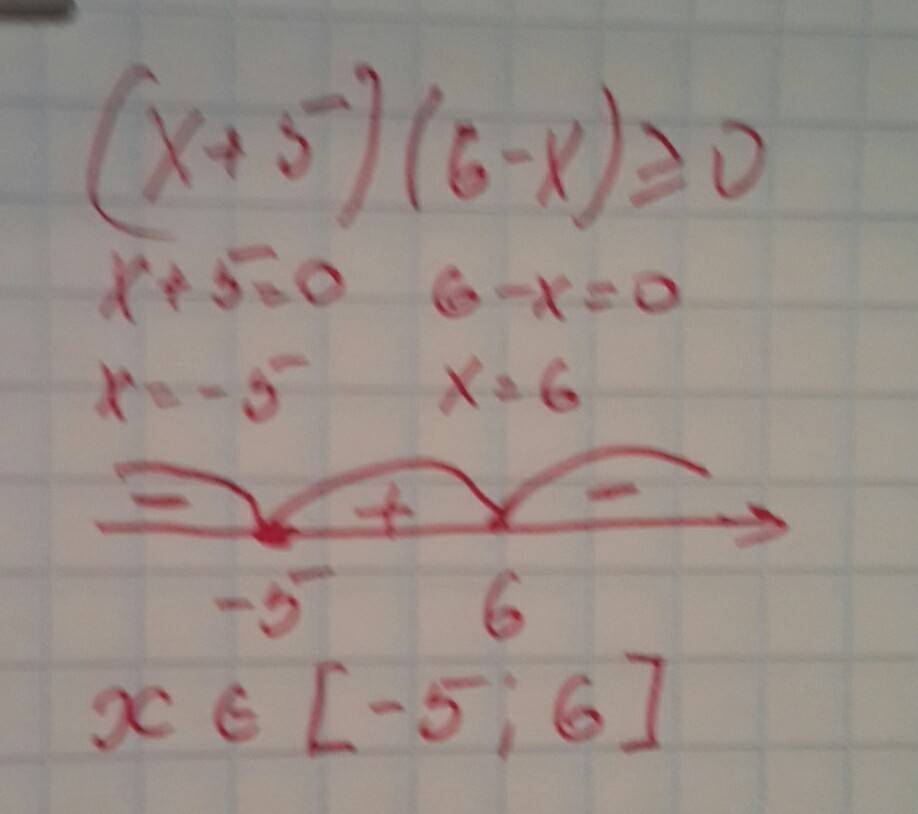 (x+5)(6-x)≥0
x+5=0 6-x=0
x=-5 x=6
- + -
-5 6
x∈[-5;6]